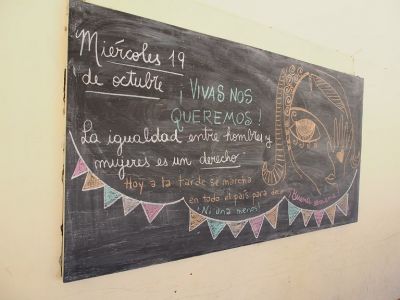 Miércoles 19
de octubre
¡VIVAS NOS
QUEREMOS!
La igualdad entre hombres y
mujeres es un derecho
Hoy a la tarde se marcha
en todo el país para decir
¡Ni una menos!
¡Buena semana!